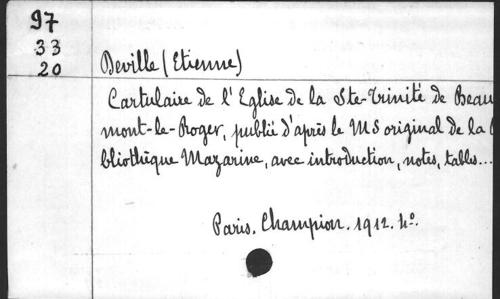 97
33
20
Deville (Etienne)
Cartulaire de l'Eglise de la Ste-Trinité de Beau
mont-le-Roger, publié d'après le MS original de la
bliothèque Mazarine, avec introduction, notes, tables...
Paris. Champion. 1912. 4º.